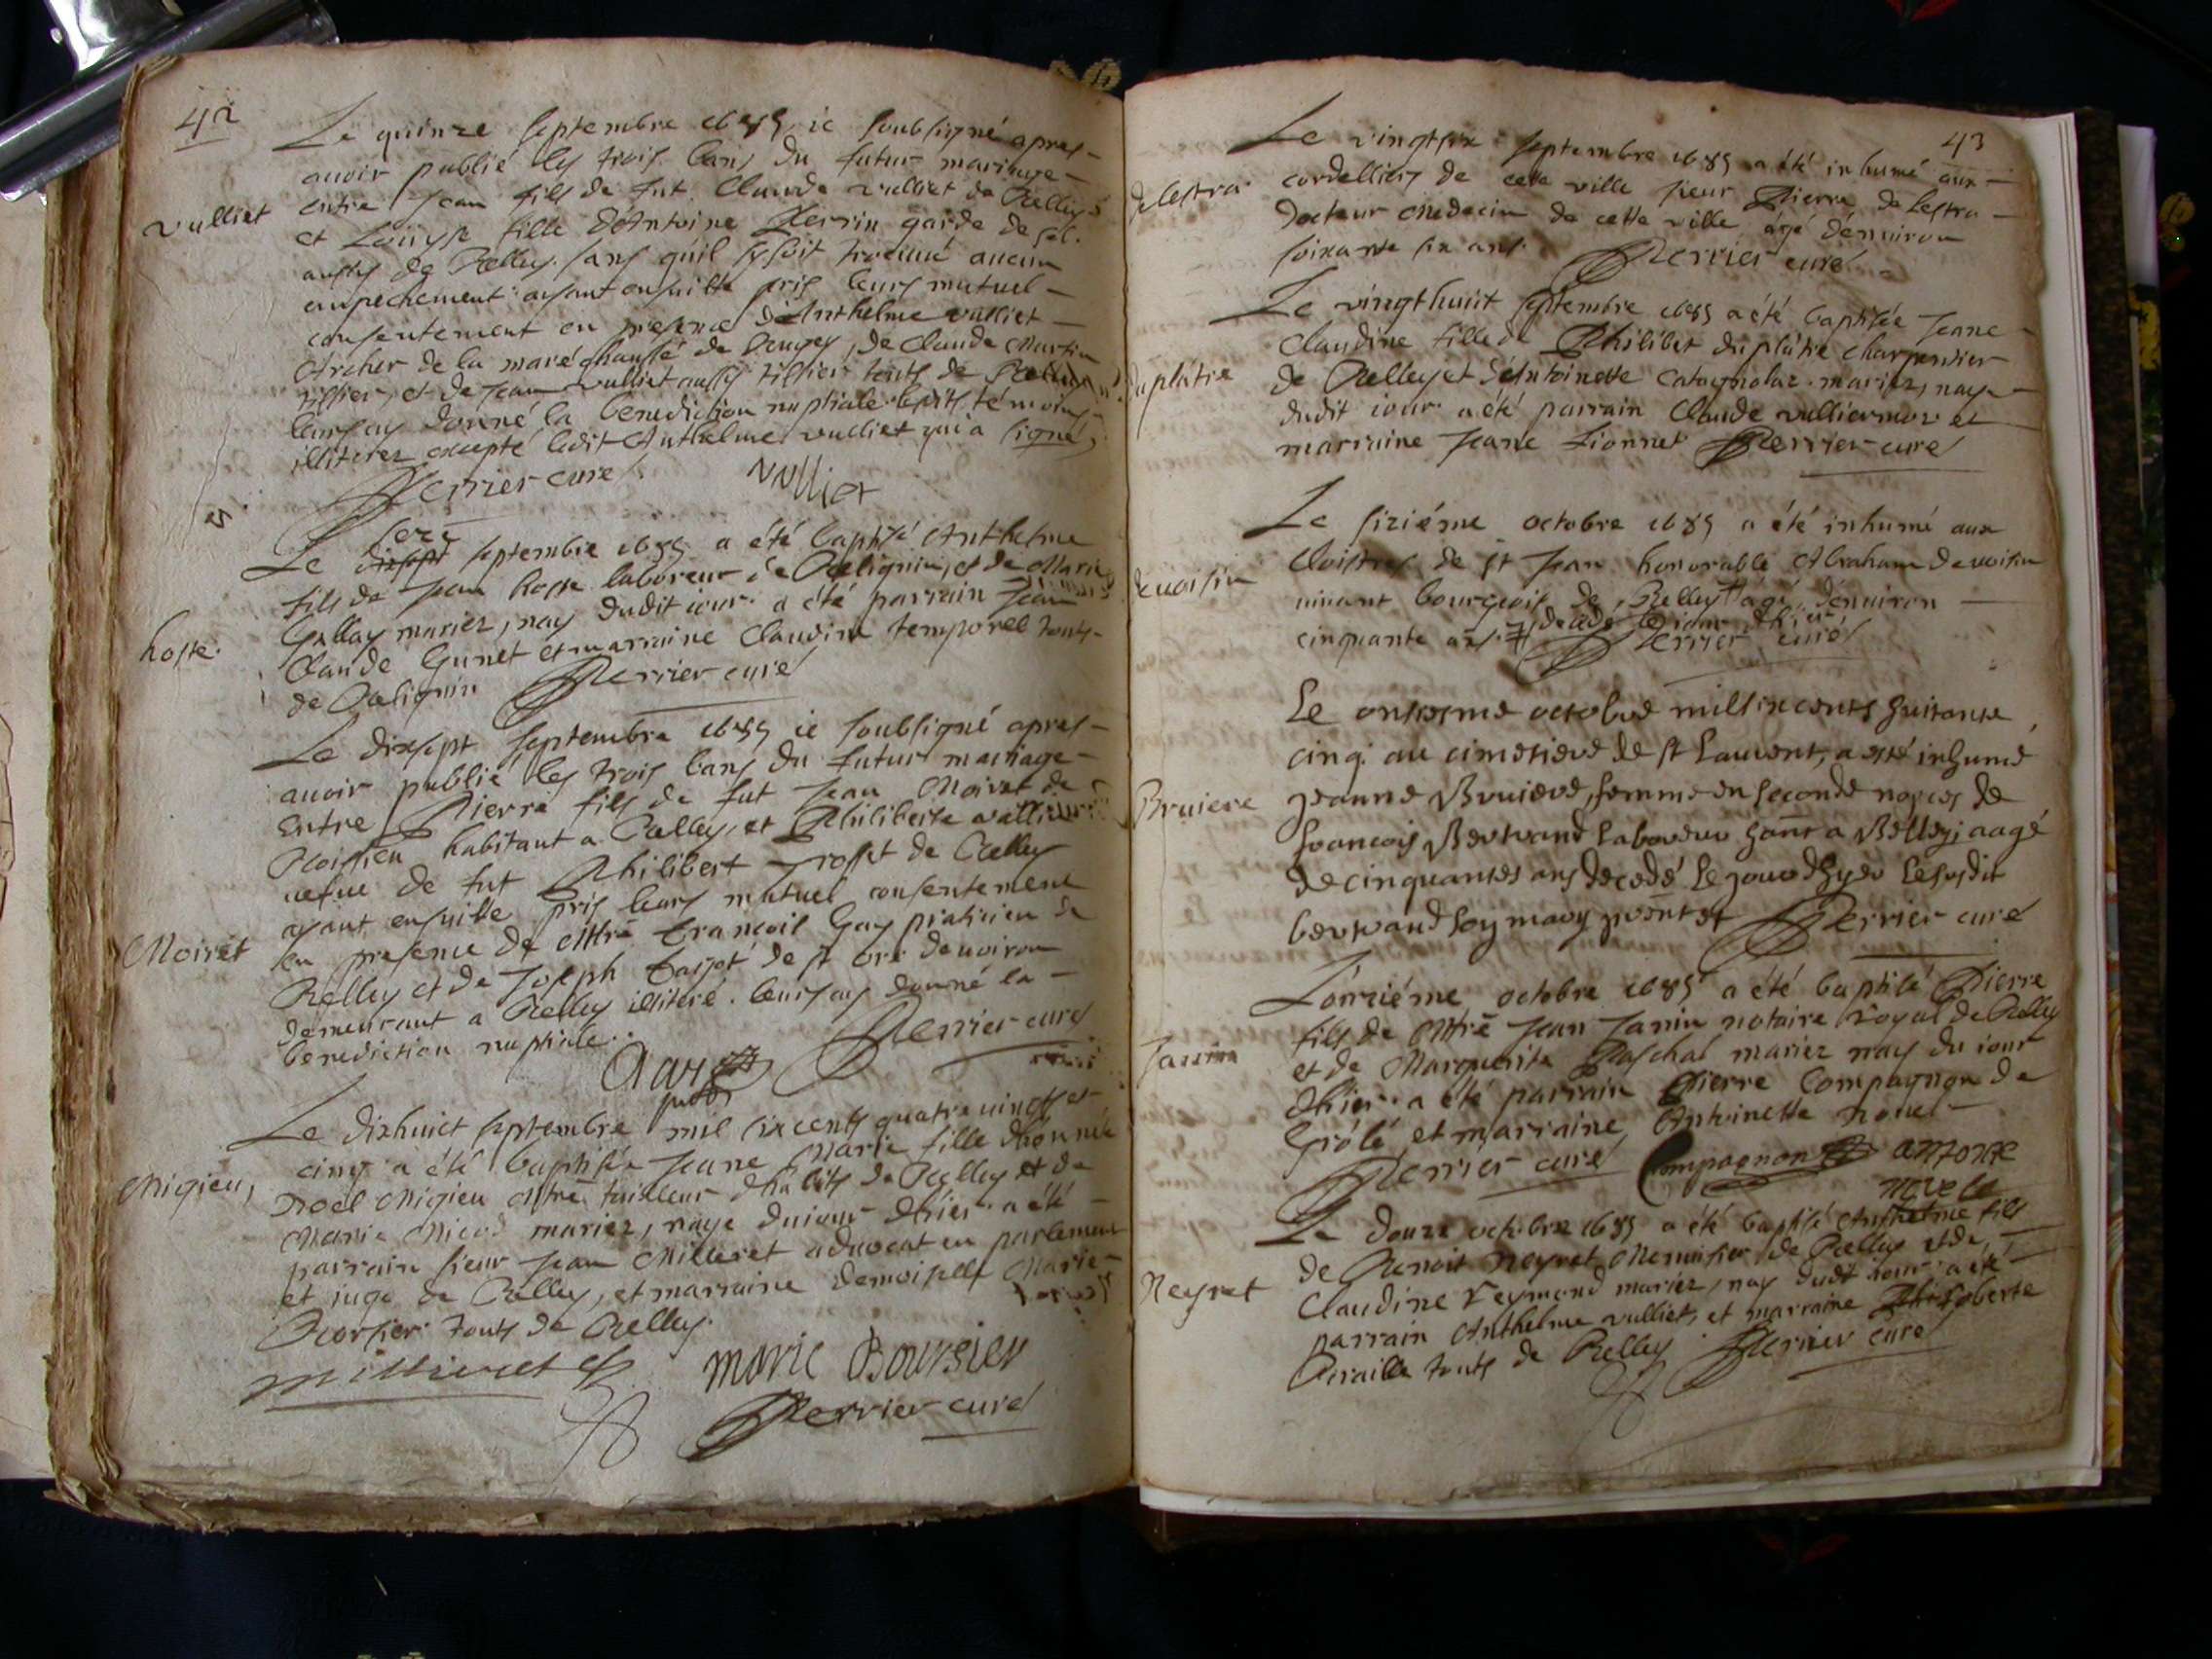 42
Le quinze septembre 1685 ie soubsigné apres
auoir publié les trois bans du futur mariage
entre Jean fils de fut Claude vulliet de Belley
vulliet
et Louyse fille d'Antoine Perrin garde de sel
aussy de Belley sans qu'il se soit trouué aucun
empechement ayant ensuitte pris leurs mutuel
consentement en presence d'Anthelme vulliet
Archer de la maréchaussé de Beugey, de Claude Martin
tissier, et de Jean vulliet aussy tissier touts de Belley
leurs ay donné la benediction nuptiale lesdits témoins
illiterez excepté ledit Anthelme vulliet qui a signé
Perrier curé vulliet
seze
Le dixsept septembre 1685 a été baptisé Anthelme
fils de Jean hoste laboreur de Belignin, et de Marie
Gallay mariez, nay dudit iour a été parrain Jean
hoste
Claude Gunet et marraine Claudine temporel touts
de Belignin Perrier curé
Le dixsept septembre 1685 ie soubsigné apres
auoir publié les trois bans du futur mariage
Entre Pierre fils de fut Jean Moiret de
habitant a Belley, et Philiberte
uefue de fut Philibert de Belley
ayant ensuitte pris leurs mutuel consentement
Moiret
en presence de Mtre François Gay praticien de
Belley et de Joseph de st
demeurant a Belley illiteré leurs ay donné la
benediction nuptiale
Perrier curé
Le dixhuict septembre mil six cents quatre uingts et
cinq a été baptisée Jeane Marie fille d'honnéte
Migieu
Noel Migieu Mtre tailleur d'habits de Belley et de
Marie mariez, naye du iour d'hier a été
parrain sieur Jean Milleret aduocat en parlement
et iuge de Belley, et marraine demoiselle Marie
Borsier touts de Belley
Millieret Marie Boursier
Perrier curé
43
Le vingtsix septembre 1685 a été inhumé aux
delestra
cordelliers de cette ville sieur Pierre de Lestra
docteur medecin de cette ville âgé d'enuiron
soixante six ans Perrier curé
Le vingthuict septembre 1685 a été baptisée Jeane
Claudine fille de Philibet duplâtre charpentier
duplâtre
de Belley et d'Antoinette mariez, naye
dudit iour a été parrain Claude vulliermoz et
marraine Jeane Lionnet Perrier curé
Le siziéme octobre 1685 a été inhumé aux
Cloistres de st Jean honorable Abraham deuoisin
deuoisin
uiuant bourgeois de Belley âgé d'enuiron
cinquante ans decedé le iour d'hier Perrier curé
Le onsiesme octobre mil six cents huitante
cinq au cimetiere de st Laurent, a esté inhumé
Bruiere
Jeanne Bruiere, femme en seconde nopces de
francois Bertrand laboreur hant a Belley aagé
de cinquantes ans decedé le jour d'hyer Le susdit
bertrand son mary present Perrier curé
L'onziéme octobre 1685 a été baptisé Pierre
fils de Mtre Jean Janin notaire Royal de Belley
Janin
et de Marguerite Paschal mariez nay du iour
d'hier a été parrain Pierre Compagnon de
Grôlé, et marraine Antoinette Nouel
Perrier curé Compagnon
Le douze octobre 1685 a été baptisé Anthelme fils
de Benoit Neyret Menuisier de Belley et de
Neyret
Claudine Reymond mariez, nay dudt iour a été
parrain Anthelme vulliet, et marraine Philiberte
touts de Belley Perrier curé